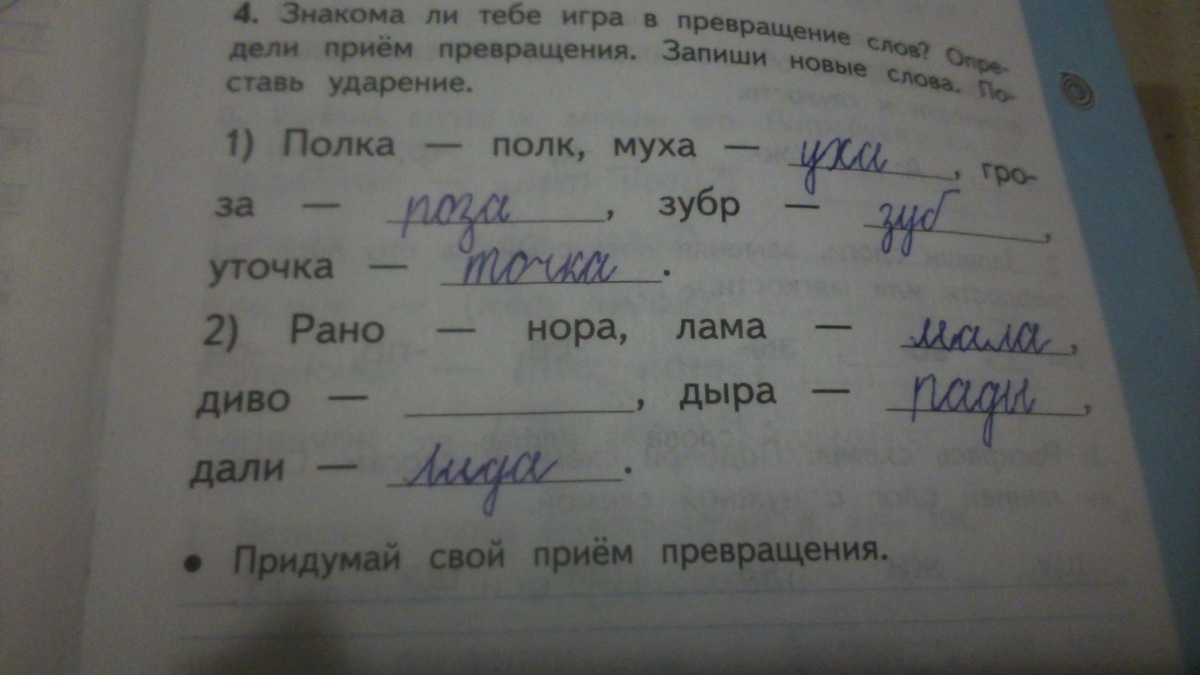 4. Знакома ли тебе игра в превращение слов? Опре-
дели приём превращения. Запиши новые слова. По-
ставь ударение.
1) Полка — полк, муха — уха, гро-
за — роза, зубр — зуб,
уточка — точка.
2) Рано — нора, лама — мала,
диво — ____, дыра — рады,
дали — лида.
• Придумай свой приём превращения.